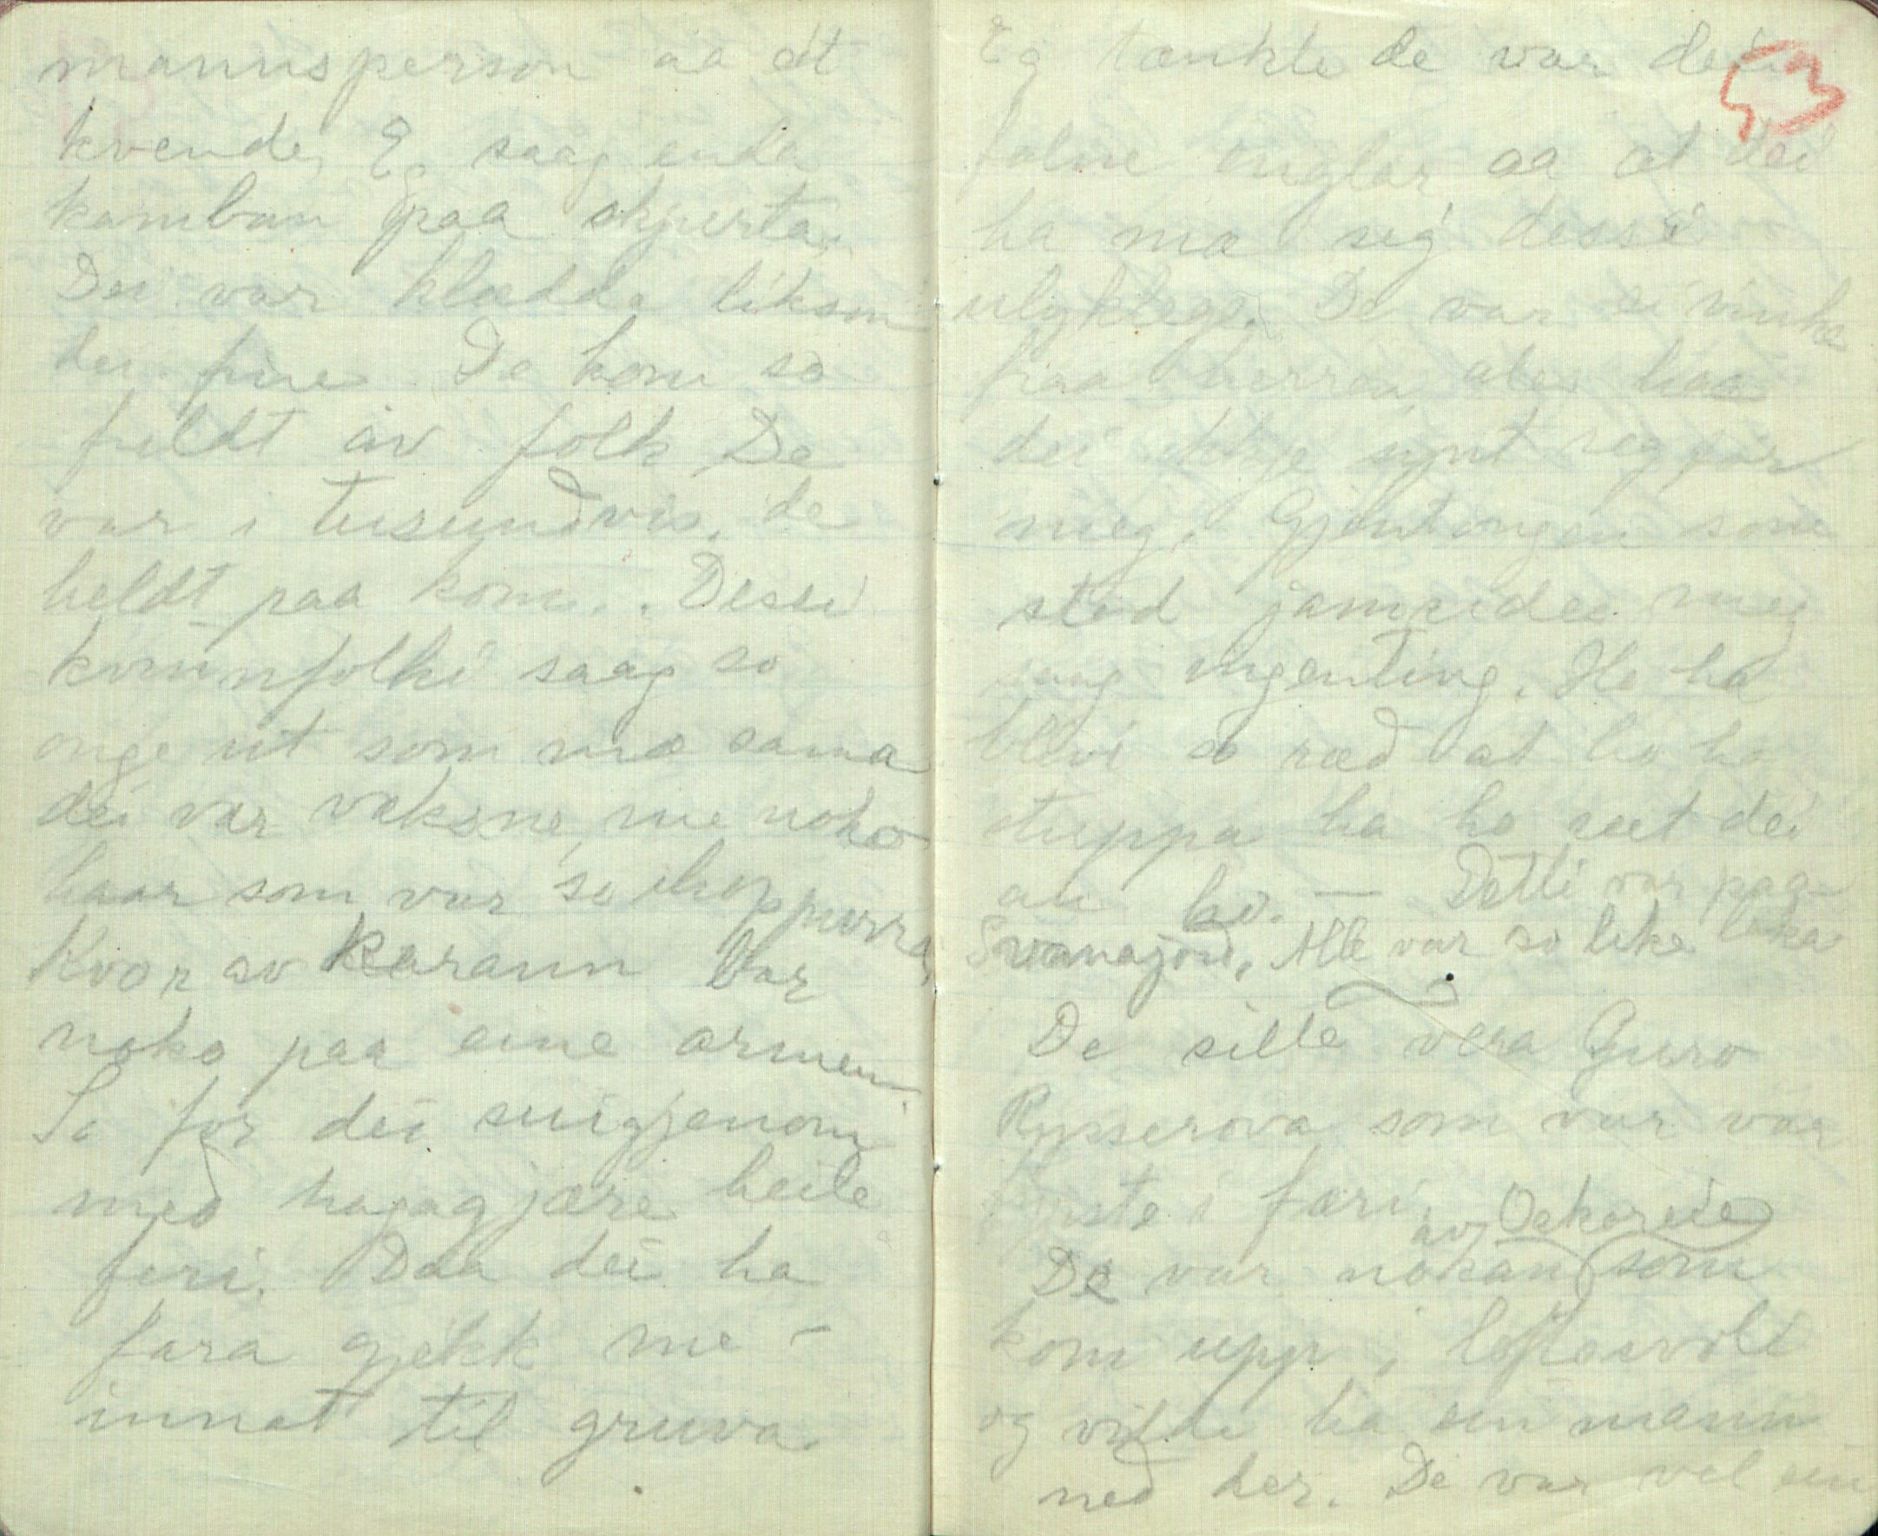 mannsperson aa et
kvende, Eg saag enda
kamban paa skjurta.
Dei var klædde liksom
dei fine. De kom so
fuldt av folk De
var i tusundvis. de
heldt paa kom.. Dessi
kvinnfolki saag so
onge ut som mæ sama
dei var vaksne, me noko
haar som var so ihoppurra,
Kvar av Karann bar
noko paa eine armen.
So for dei suigjenom
med hagagjære heile
feri. Daa dei ha
fara gjekk me
innat til gruva.
Eg tænkte de var dei
falne englar aa at dei
ha mæ seg desse
ulyklege. De var ei vinke
fraa herren, eles haa
dei ikkje synt seg for
meg. Gjentongen som
stod jamsides meg
saag ingenting. Ho ha
blivi so ræd at ho ha
stuppa ha ho sét dei
an ho. — Detti var paa
Svanajord. Alle var so like
De sille vera Guro
Rysserova som var var
fyste i færi.
av Oskoreie
De var nokan som
kom upp i
og vilde ha ein mann
ned her. De var vel ein